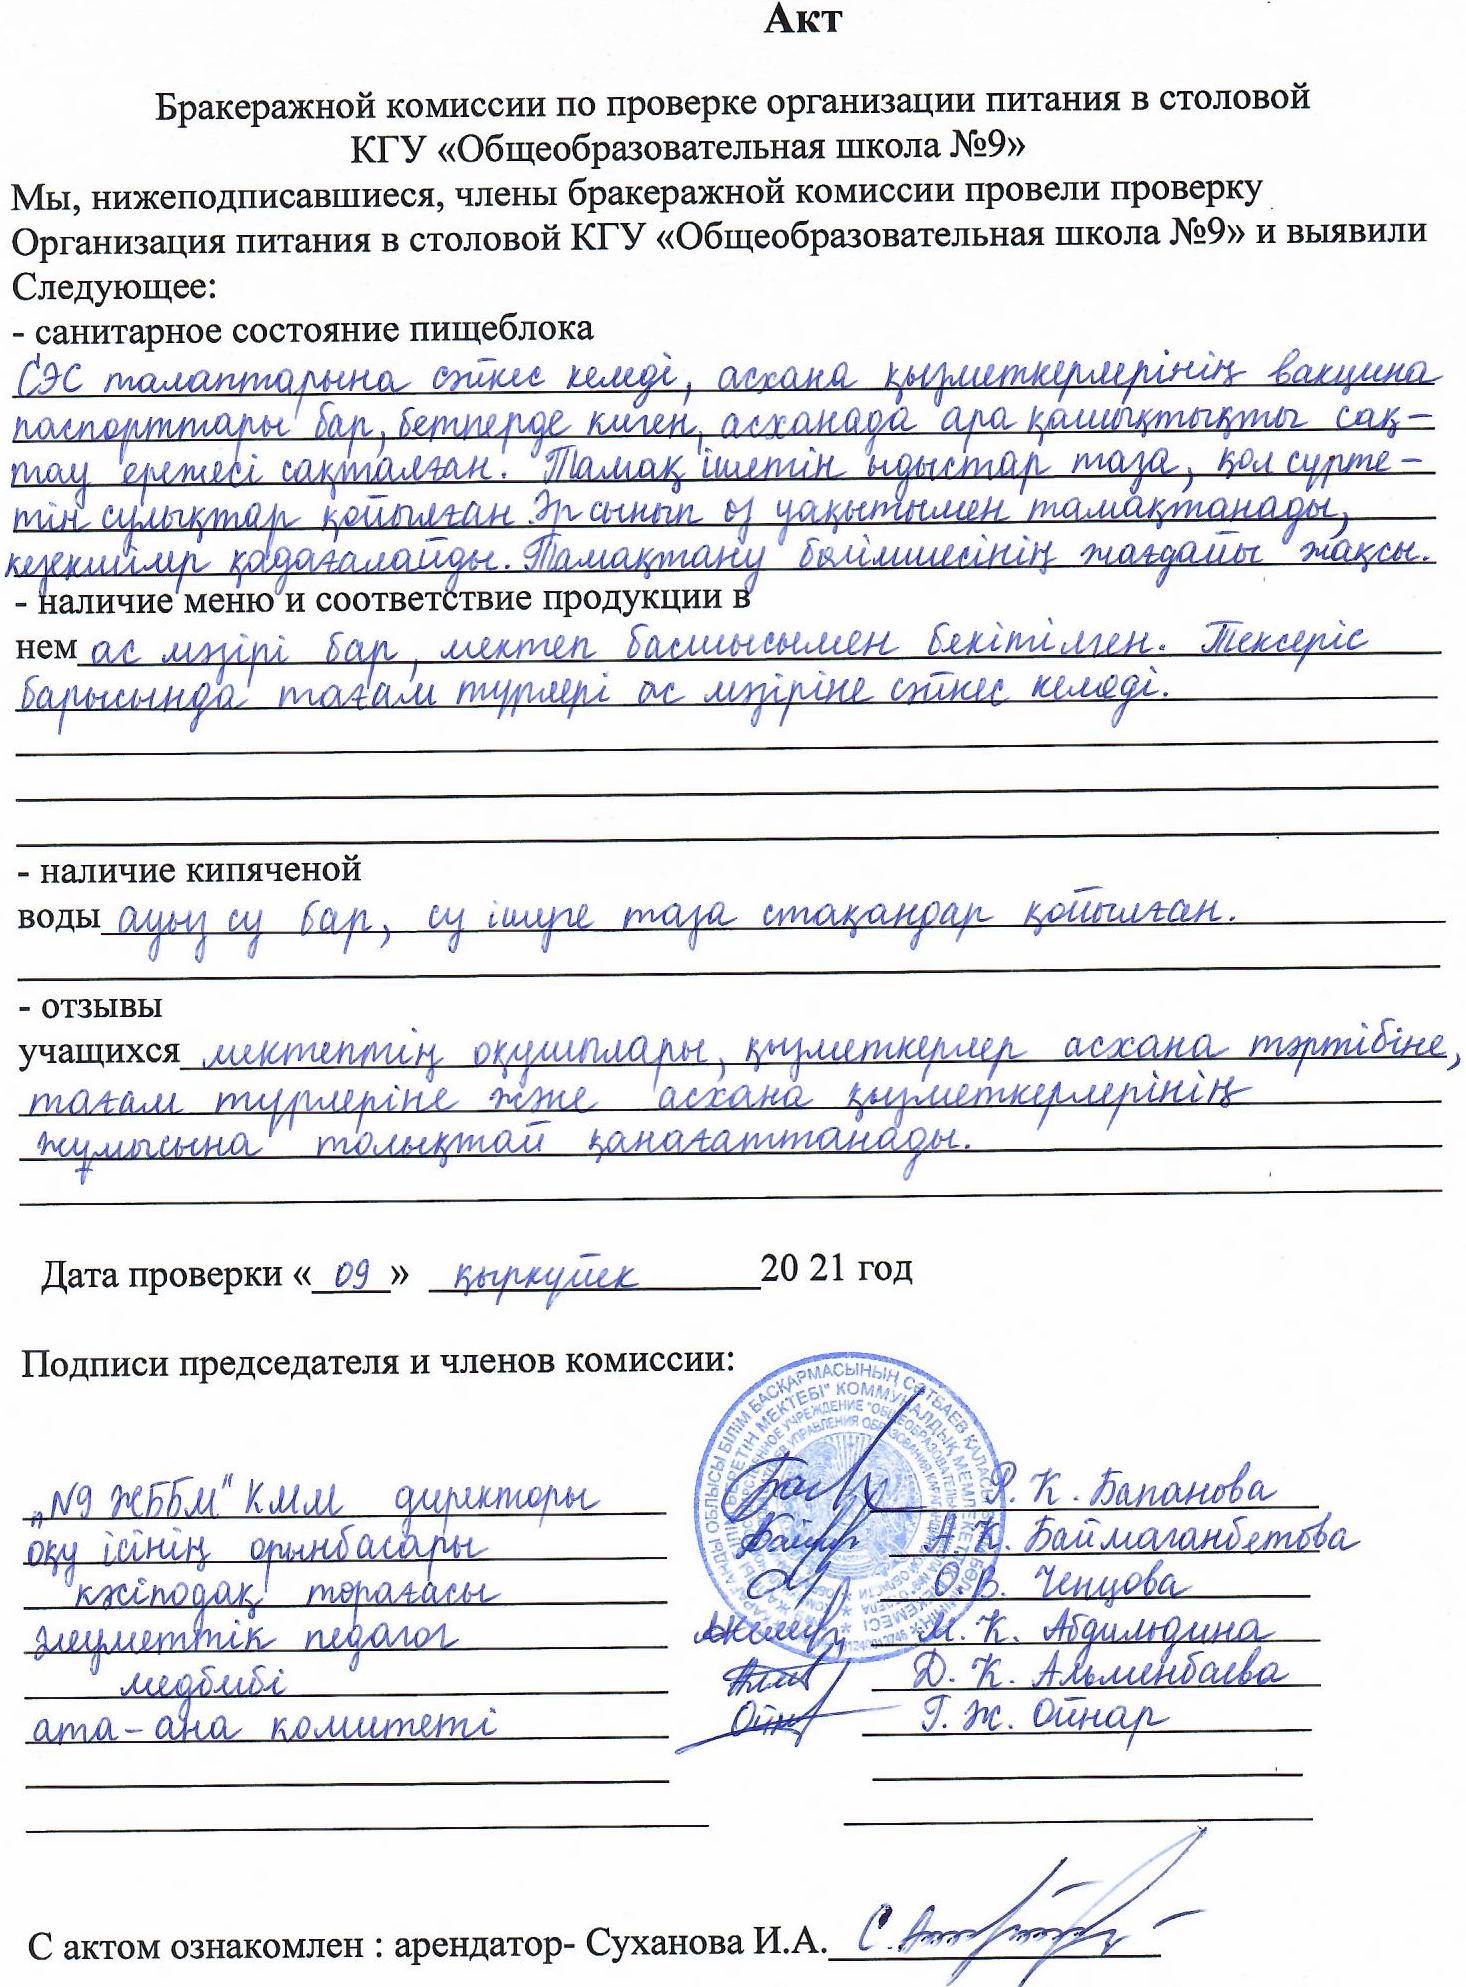 Акт
Бракеражной комиссии по проверке организации питания в столовой
КГУ «Общеобразовательная школа №9»
Мы, нижеподписавшиеся, члены бракеражной комиссии провели проверку
Организация питания в столовой КГУ «Общеобразовательная школа №9» и выявили
Следующее:
- санитарное состояние пищеблока
СЭС талаптарына сәйкес келеді, асхана қызметкерлерінің вакцина
паспорттары бар, бетперде киген, асханада ара қашықтықты сақ-
тау ережесі сақталған. Тамақ ішетін ыдыстар таза, қол сүрте-
тін сулықтар қойылған. Әр сынып өз уақытымен тамақтанады,
кезекшілер қадағалайды. Тамақтану бөлімшесінің жағдайы жақсы.
- наличие меню и соответствие продукции в
нем ас мәзірі бар, мектеп басшысымен бекітілген. Тексеріс
барысында тағам түрлері ас мәзіріне сәйкес келеді.
- наличие кипяченой
воды ауыз су бар, су ішуге таза стақандар қойылған.
- отзывы
учащихся мектептің оқушылары, қызметкерлер асхана тәртібіне,
тағам түрлеріне және асхана қызметкерлерінің
жұмысына толықтай қанағаттанады.
Дата проверки «09» қыркүйек 20 21 год
Подписи председателя и членов комиссии:
„№9 ЖББМ" КММ директоры Р. К. Бапанова
оқу ісінің орынбасары А. К. Баймаганбетова
кәсіподақ төрағасы О. В. Ченцова
әлеуметтік педагог М. К. Абдильдина
медбибі Д. К. Альменбаева
ата-ана комитеті Г. Ж. Ойнар
С актом ознакомлен : арендатор- Суханова И.А.